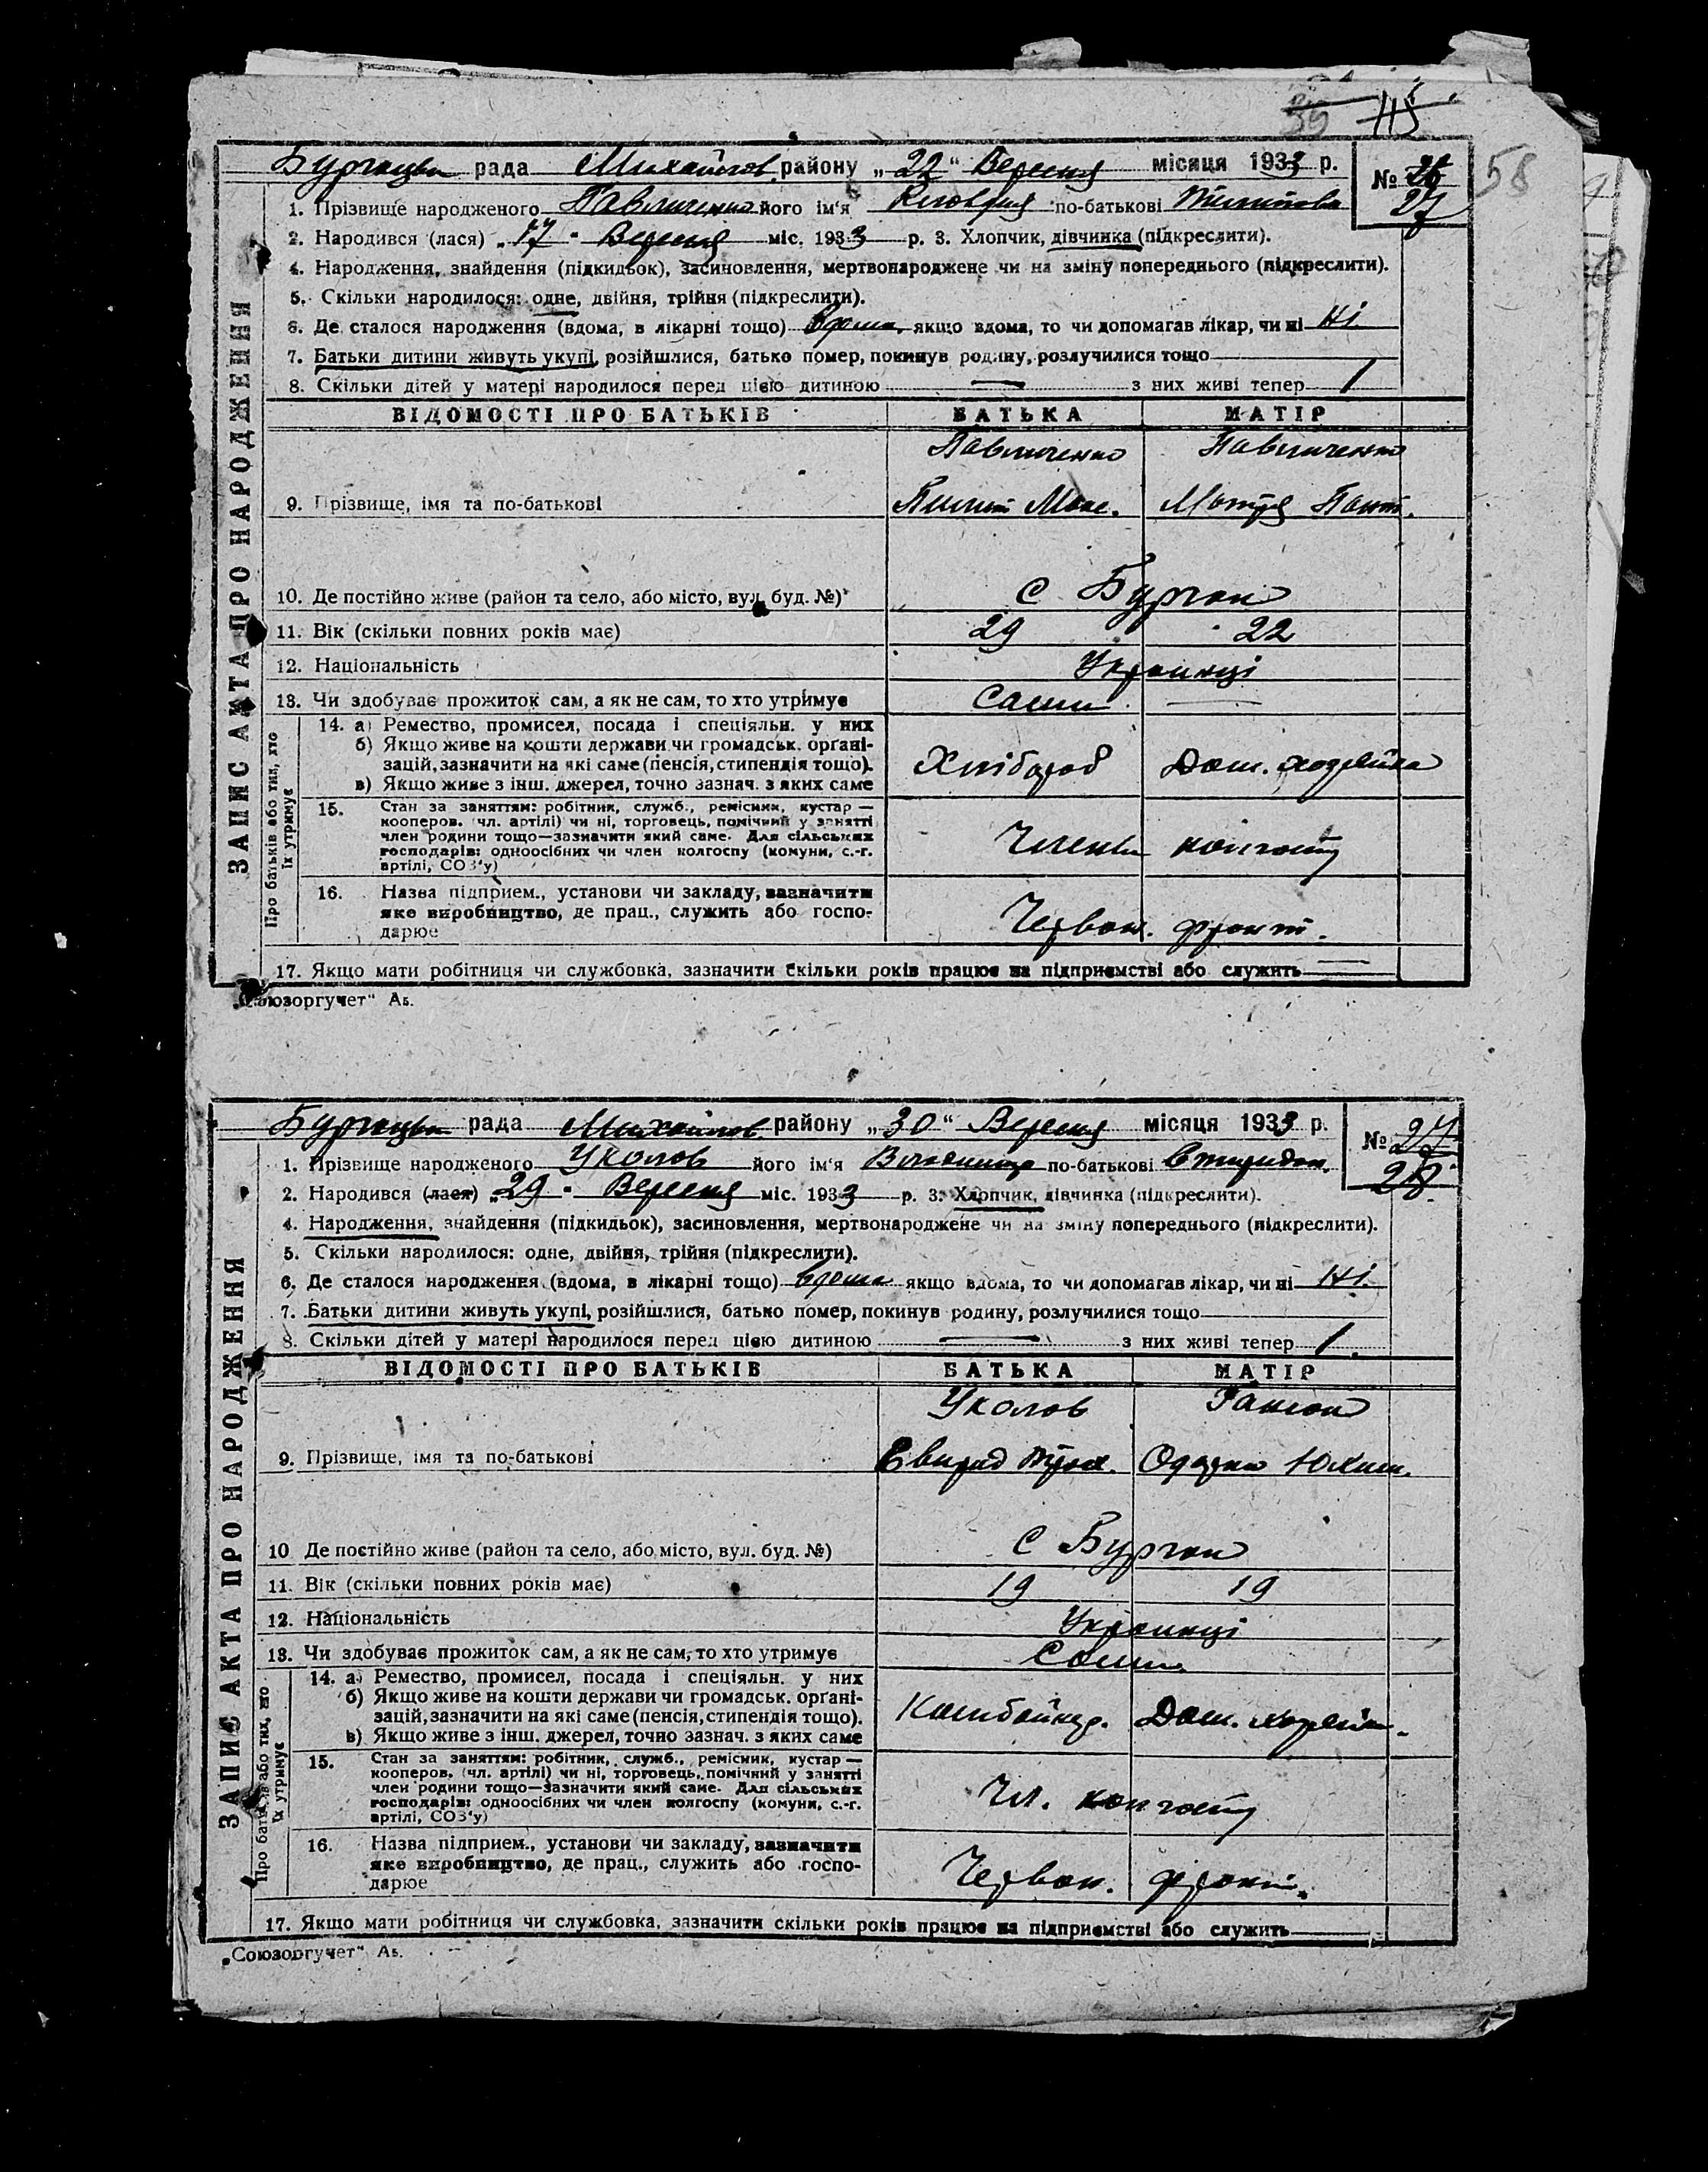 39 115
58
Бургацька рада Михайлов. району „22“ Вересня місяця 1933 р.
№ 26
27
1. Прізвище народженого Павличенко його ім‘я Клавдия по-батькові Пилипова
2. Народився (лася) „17“ Вересня міс. 1933 р. 3. Хлопчик, дівчинка (підкреслити).
4. Народження, знайдення (підкидьок), засиновлення, мертвонароджене чи на зміну попереднього (підкреслити).
5. Скільки народилося: одне, двійня, трійня (підкреслити).
6. Де сталося народження (вдома, в лікарні тощо) вдома, якщо вдома, то чи допомагав лікар, чи ні ні.
7. Батьки дитини живуть укупі, розійшлися, батько помер, покинув родину, розлучилися тощо
8. Скільки дітей у матері народилося перед цією дитиною — з них живі тепер 1
ЗАПИС АКТА ПРО НАРОДЖЕННЯ
ВІДОМОСТІ ПРО БАТЬКІВ БАТЬКА МАТІР
Павличенко Павличенко
9. Прізвище, імя та по-батькові Пилип Мак. Мотря Пант.
10. Де постійно живе (район та село, або місто, вул. буд. №) с Бурчак
11. Вік (скільки повних років має) 29 22
12. Національність Українці
13. Чи здобуває прожиток сам, а як не сам, то хто утримує Сами —
Про батьків або тих, хто їх утримує
14. а) Ремество, промисел, посада і спеціяльн. у них
б) Якщо живе на кошти держави чи громадськ. орґані-
зацій, зазначити на які саме (пенсія, стипендія тощо). Хлібороб Дом. хозяйка
в) Якщо живе з інш. джерел, точно зазнач. з яких саме
15. Стан за заняттям: робітник, служб., ремісник, кустар —
кооперов. (чл. артілі) чи ні, торговець, помічний у занятті
член родини тощо—зазначити який саме. Для сільських
господарів: одноосібних чи член колгоспу (комуни, с.-г. Члени колгоспу
артілі, СОЗ‘у)
16. Назва підприєм., установи чи закладу, зазначити
яке виробництво, де прац., служить або госпо-
дарює Червон. фронт.
17. Якщо мати робітниця чи службовка, зазначити скільки років працює на підприємстві або служить —
„Союзоргучет“ Аб.
Бургацька рада Михайлов. району „30“ Вересня місяця 1933 р.
№ 27
28.
1. Прізвище народженого Уколов його ім‘я Володимир по-батькові
2. Народився (лася) „29“ Вересня міс. 1933 р. 3. Хлопчик, дівчинка (підкреслити).
4. Народження, знайдення (підкидьок), засиновлення, мертвонароджене чи на зміну попереднього (підкреслити).
5. Скільки народилося: одне, двійня, трійня (підкреслити).
6. Де сталося народження (вдома, в лікарні тощо) вдома якщо вдома, то чи допомагав лікар, чи ні ні.
7. Батьки дитини живуть укупі, розійшлися, батько помер, покинув родину, розлучилися тощо
8. Скільки дітей у матері народилося перед цією дитиною — з них живі тепер 1.
ЗАПИС АКТА ПРО НАРОДЖЕННЯ
ВІДОМОСТІ ПРО БАТЬКІВ БАТЬКА МАТІР
Уколов
9. Прізвище, імя та по-батькові Свирид Одарка Юхим.
10 Де постійно живе (район та село, або місто, вул. буд. №) с Бурчак
11. Вік (скільки повних років має) 19 19
12. Національність Українці
13. Чи здобуває прожиток сам, а як не сам, то хто утримує Сами
Про батьків або тих, хто їх утримує
14. а) Ремество, промисел, посада і спеціяльн. у них
б) Якщо живе на кошти держави чи громадськ. орґані-
зацій, зазначити на які саме (пенсія, стипендія тощо). Комбайнер. Дом. хозяйка
в) Якщо живе з інш. джерел, точно зазнач. з яких саме
15. Стан за заняттям: робітник, служб., ремісник, кустар —
кооперов. (чл. артілі) чи ні, торговець, помічний у занятті
член родини тощо—зазначити який саме. Для сільських
господарів: одноосібних чи член колгоспу (комуни, с.-г. Чл. колгоспу
артілі, СОЗ‘у)
16. Назва підприєм., установи чи закладу, зазначити
яке виробництво, де прац., служить або госпо-
дарює Червон. фронт.
17. Якщо мати робітниця чи службовка, зазначити скільки років працює на підприємстві або служить —
„Союзоргучет“ Аб.